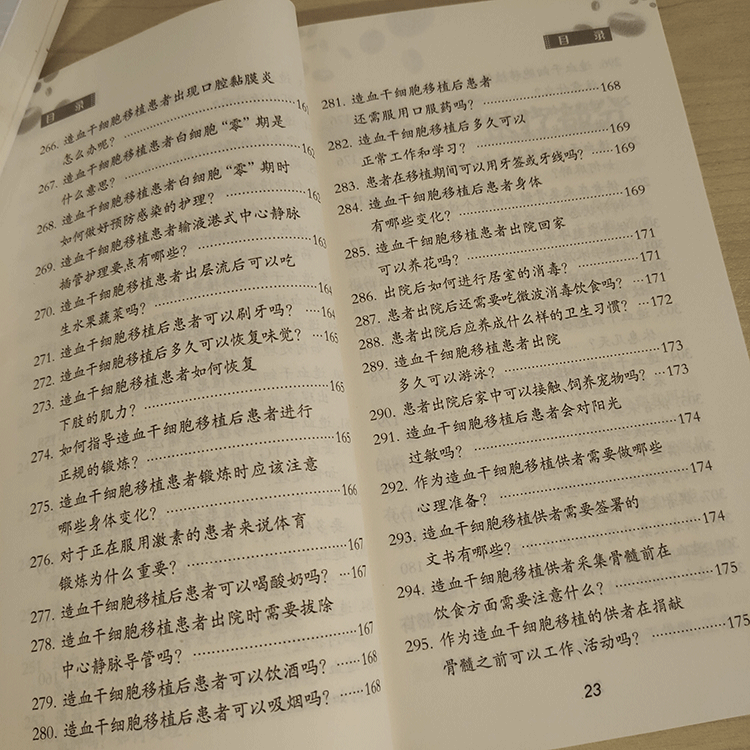 目 录
266. 造血干细胞移植患者出现口腔黏膜炎
怎么办呢? ……………………………161
267. 造血干细胞移植患者白细胞“零”期是
什么意思? ……………………………162
268. 造血干细胞移植患者白细胞“零”期时
如何做好预防感染的护理? ……………162
269. 造血干细胞移植患者输液港式中心静脉
插管护理要点有哪些? …………………163
270. 造血干细胞移植患者出层流后可以吃
生水果蔬菜吗? …………………………164
271. 造血干细胞移植后患者可以刷牙吗? ……164
272. 造血干细胞移植后多久可以恢复味觉? …165
273. 造血干细胞移植患者如何恢复
下肢的肌力? ……………………………165
274. 如何指导造血干细胞移植后患者进行
正规的锻炼? ……………………………165
275. 造血干细胞移植患者锻炼时应该注意
哪些身体变化? …………………………166
276. 对于正在服用激素的患者来说体育
锻炼为什么重要? ………………………167
277. 造血干细胞移植后患者可以喝酸奶吗? …167
278. 造血干细胞移植患者出院时需要拔除
中心静脉导管吗? ………………………167
279. 造血干细胞移植后患者可以饮酒吗? ……168
280. 造血干细胞移植后患者可以吸烟吗? ……168
目 录
281. 造血干细胞移植后患者
还需服用口服药吗? ……………………168
282. 造血干细胞移植后多久可以
正常工作和学习? ………………………169
283. 患者在移植期间可以用牙签或牙线吗? …169
284. 造血干细胞移植后患者身体
有哪些变化? ……………………………169
285. 造血干细胞移植患者出院回家
可以养花吗? ……………………………171
286. 出院后如何进行居室的消毒? ……………171
287. 患者出院后还需要吃微波消毒饮食吗? …171
288. 患者出院后应养成什么样的卫生习惯? …172
289. 造血干细胞移植患者出院
多久可以游泳? …………………………173
290. 患者出院后家中可以接触、饲养宠物吗? …173
291. 造血干细胞移植后患者会对阳光
过敏吗? …………………………………174
292. 作为造血干细胞移植供者需要做哪些
心理准备? ………………………………174
293. 造血干细胞移植供者需要签署的
文书有哪些? ……………………………174
294. 造血干细胞移植供者采集骨髓前在
饮食方面需要注意什么? ………………175
295. 作为造血干细胞移植的供者在捐献
骨髓之前可以工作、活动吗? ……………175
23